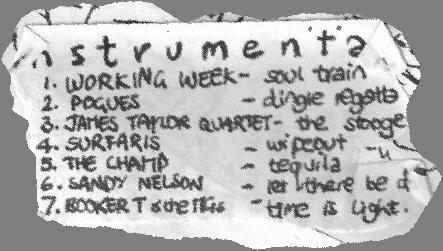 nstrumenta
1. WORKING WEEK - soul train
2. POGUES - dingle regatta
3. JAMES TAYLOR QUARTET - the stooge
4. SURFARIS - wipeout
5. THE CHAMP - tequila
6. SANDY NELSON - let there be d
7. BOOKER T & the MGs - time is tight.